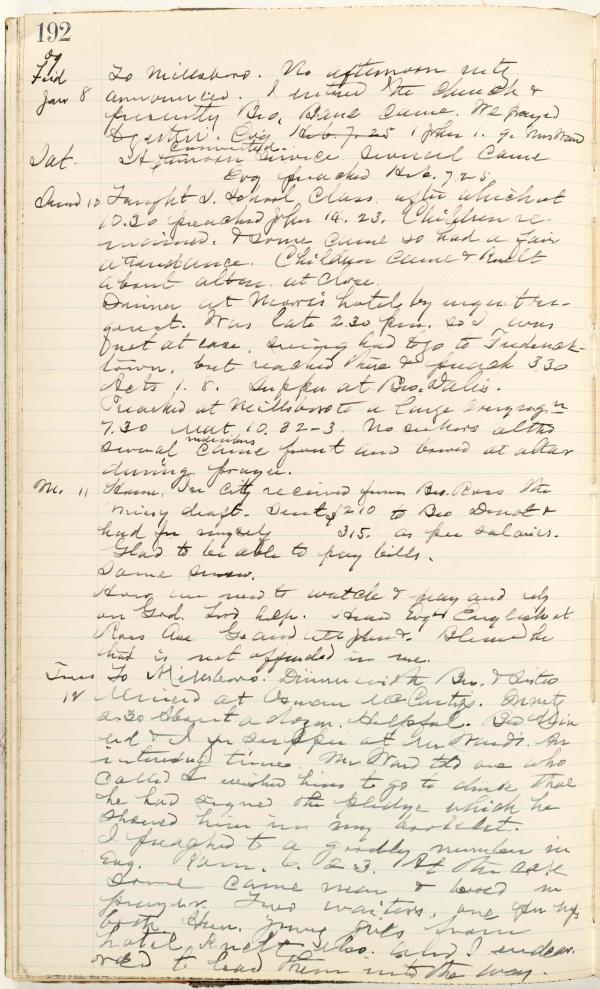 192
Frid To Millsboro. No afternoon mtg
Jan 8 announced. I entered the church &
presently Bro. Bane came. We prayed
together. Evg Heb. 7.25 1 John 1. 9. Mrs Ward
converted.
Sat. Afternoon service. Several came
Evg preached Heb. 7.25
Sund 10 Taught S. School Class after which at
10.30 preached John 14. 23. Children re-
mained. & some came so had a fair
attendance. Children came & knelt
about altar at close.
Dinner at Morris hotel by urgent re-
quest. Was late 2.30 p.m. so I was
not at ease, seeing had to go to Frederick-
town, but reached there & preach 3 30
Acts 1. 8. Supper at Bro.
Preached at Millsboro to a large
7.30 Mat. 10. 32-3. No seekers altho
several members came front and bowed at altar
during prayer.
M. 11 Home. In city received from Bro. Ross the
Missy draft. Sent $210 to Bro &
had for myself 315. as per salaries.
Glad to be able to pay bills.
Some snow.
How we need to watch & pray and rely
on God. Lord help. Heard Evgt English at
Ross Ave. Go and tell John. Blessed he
that is not offended in me.
Tues To Millsboro. Dinner with Bro. & Sister
12 at
2.30 About a dozen. Helpful. Bro
& I for supper at Mr Wards. An
interesting time. Mr Ward told one who
called & wished him to go to drink, that
he had signed the pledge which he
showed him in my booklet.
I preached to a goodly number in
Evg. Rom. 6. 23. At the close
some came near & bowed in
prayer. Two waiters, one
both Hun. young girls from
hotel knelt also. and I endeav-
ored to lead them into the way.